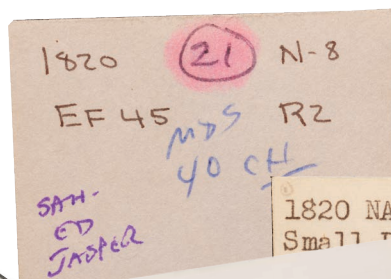 1820 21 N-8
EF 45 R2
MDS
40 CH
SAH-
ED
JASPER
1820 NA
Small